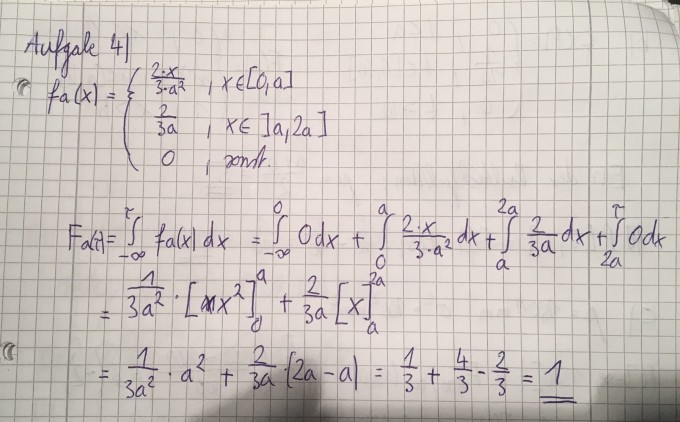 Aufgabe 4)
fa(x) = { 2·x / 3·a² , x∈[0,a]
2 / 3a , x∈ ]a,2a]
0 , sonst.
Fa(τ) = ∫_{-∞}^{τ} fa(x) dx = ∫_{-∞}^{0} 0dx + ∫_{0}^{a} 2·x / 3·a² dx + ∫_{a}^{2a} 2/3a dx + ∫_{2a}^{τ} 0dx
= 1/3a² · [x²]_{0}^{a} + 2/3a [x]_{a}^{2a}
= 1/3a² · a² + 2/3a · (2a - a) = 1/3 + 4/3 - 2/3 = 1